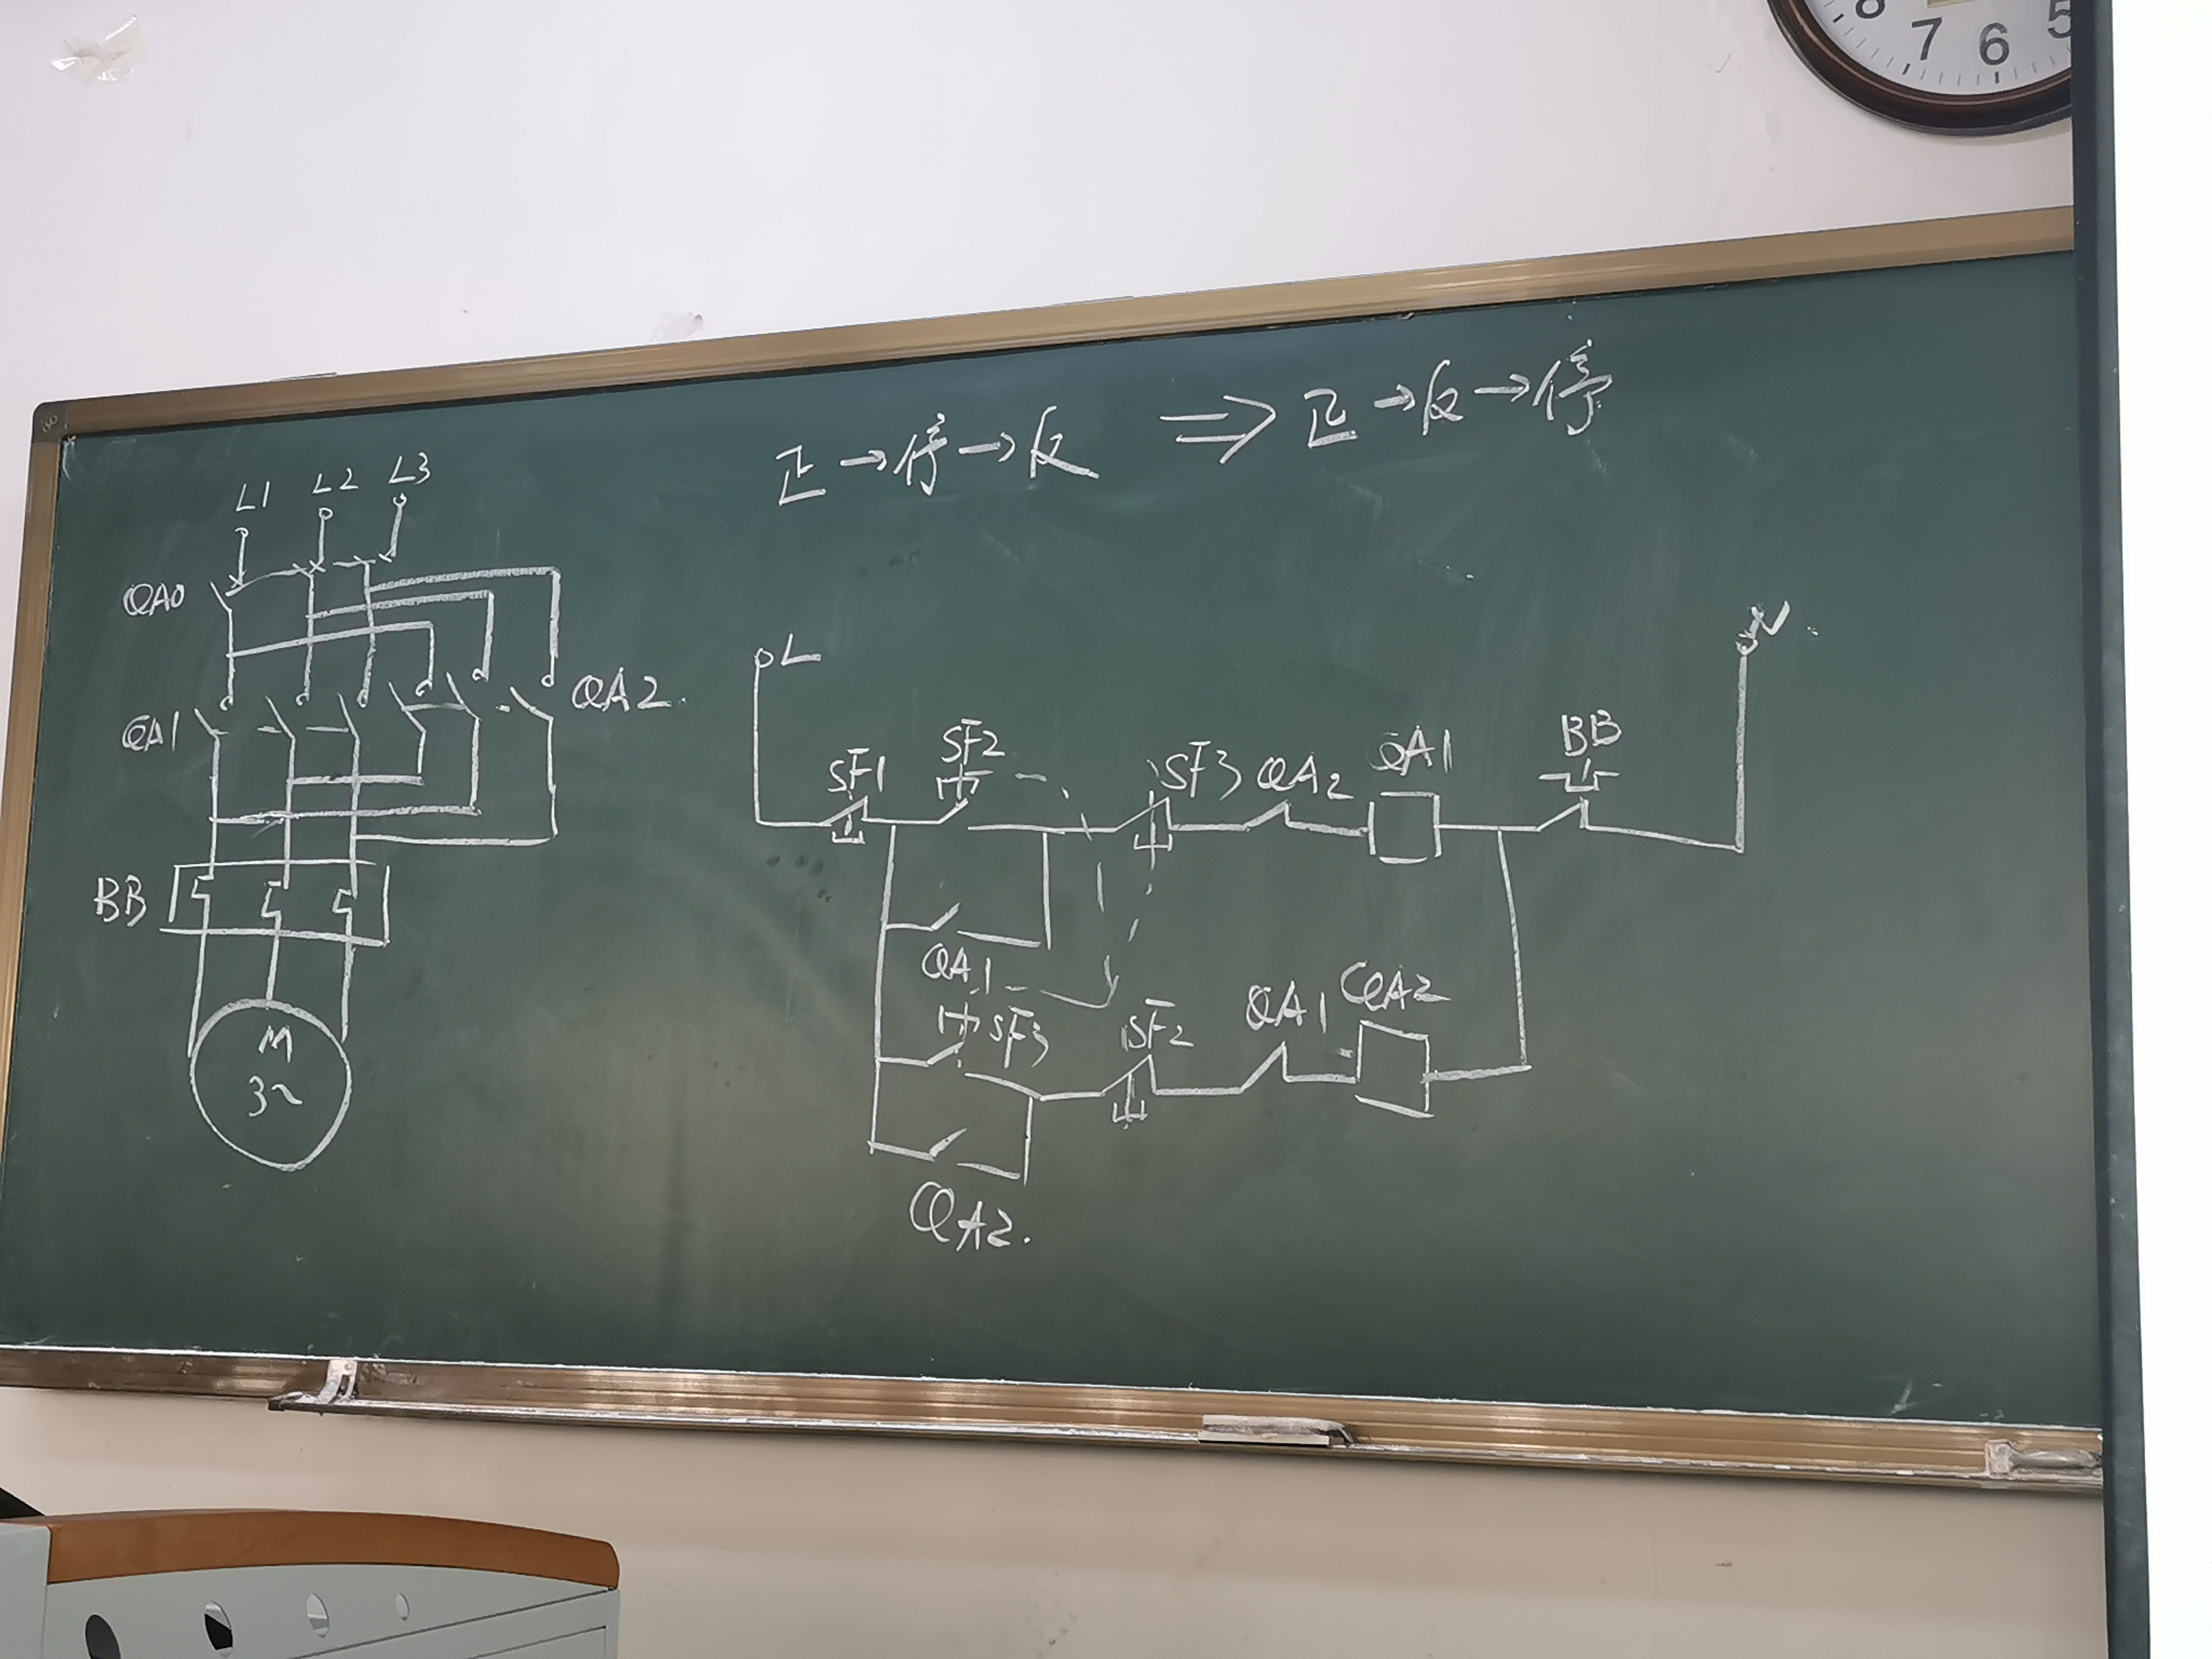 8 7 6 5
正→停→反 ⇒ 正→反→停
L1 L2 L3
QA0
QA1
QA2.
BB
M
3~
L
N
SF1
SF2
SF3
QA2
QA1
BB
QA1
SF3
SF2
QA1
QA2
QA2.